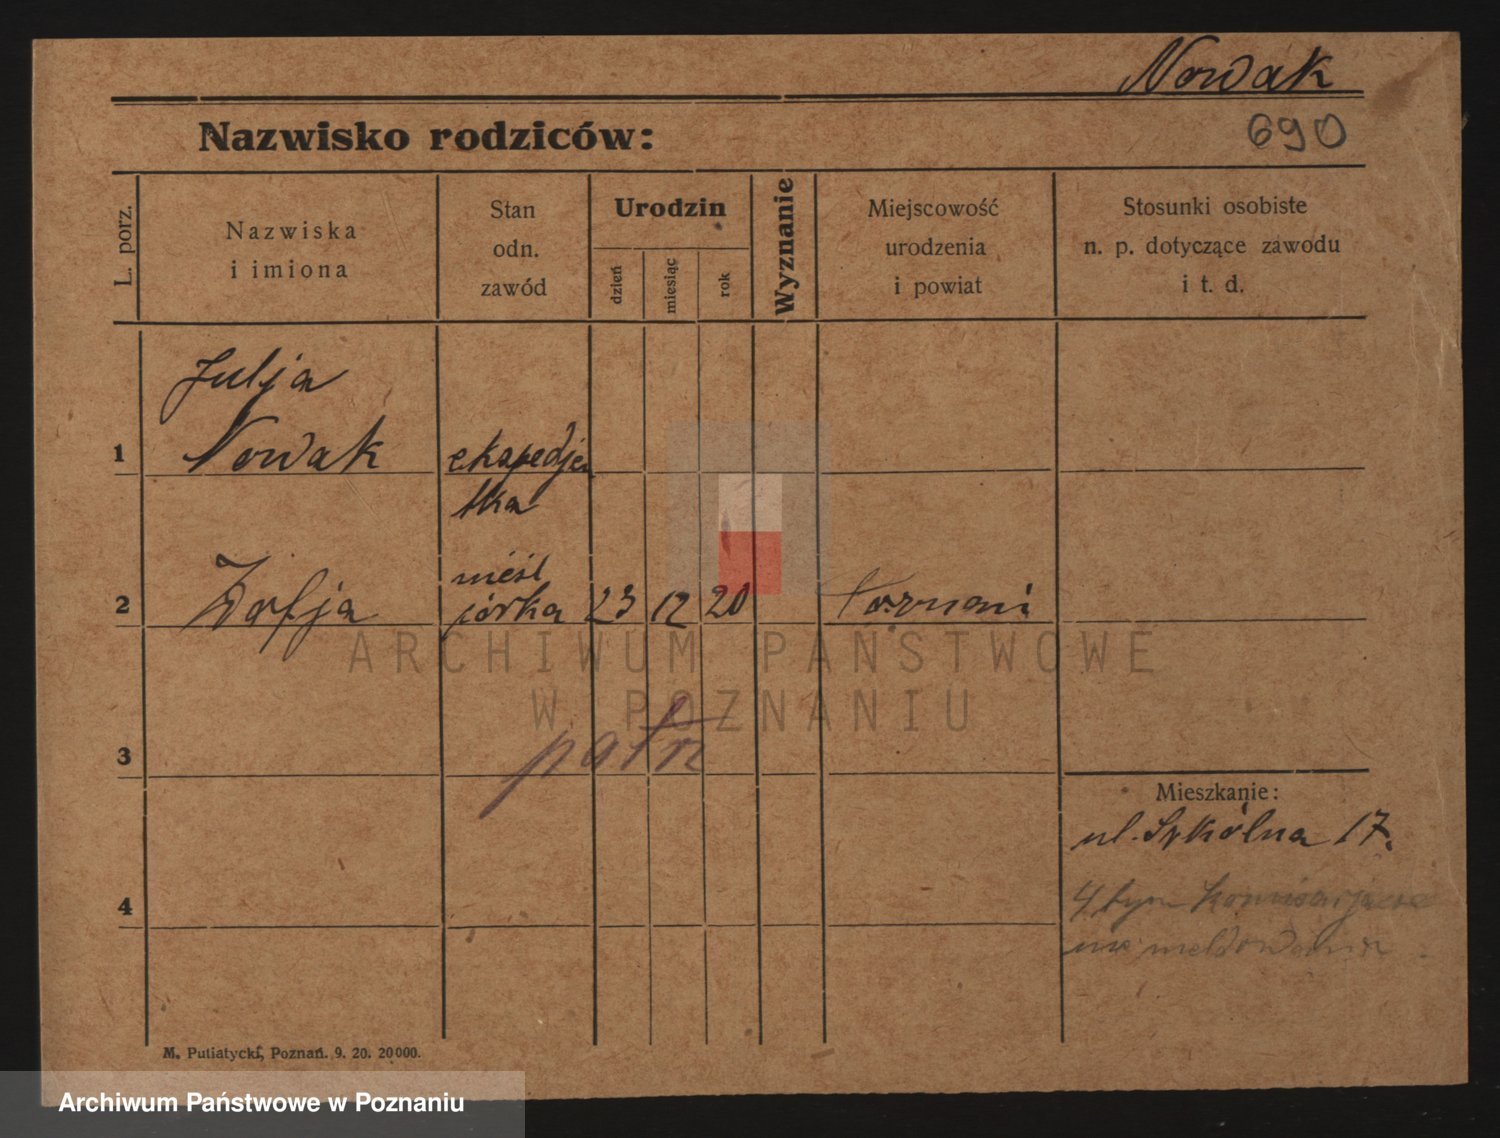 Nowak
Nazwisko rodziców:
690
L. porz.
Nazwiska
i imiona
Stan
odn.
zawód
Urodzin
dzień
miesiąc
rok
Wyznanie
Miejscowość
urodzenia
i powiat
Stosunki osobiste
n. p. dotyczące zawodu
i t. d.
Julja
1 Nowak ekspedjen
tka
nieśl
2 Zofja córka 23 12 20 Poznani
ARCHIWUM PAŃSTWOWE
W POZNANIU
3 patrz
Mieszkanie:
ul. Szkólna 17.
4
tym Komisarjacie
nie meldowana
M. Putiatycki, Poznań. 9. 20. 20000.
Archiwum Państwowe w Poznaniu